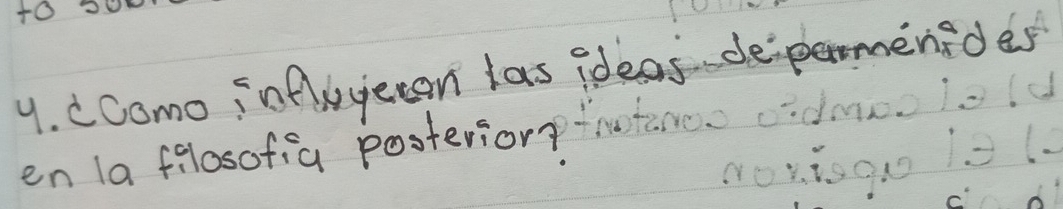 to
4. ¿Como influyeron las ideas de parménides
en la filosofía posterior?